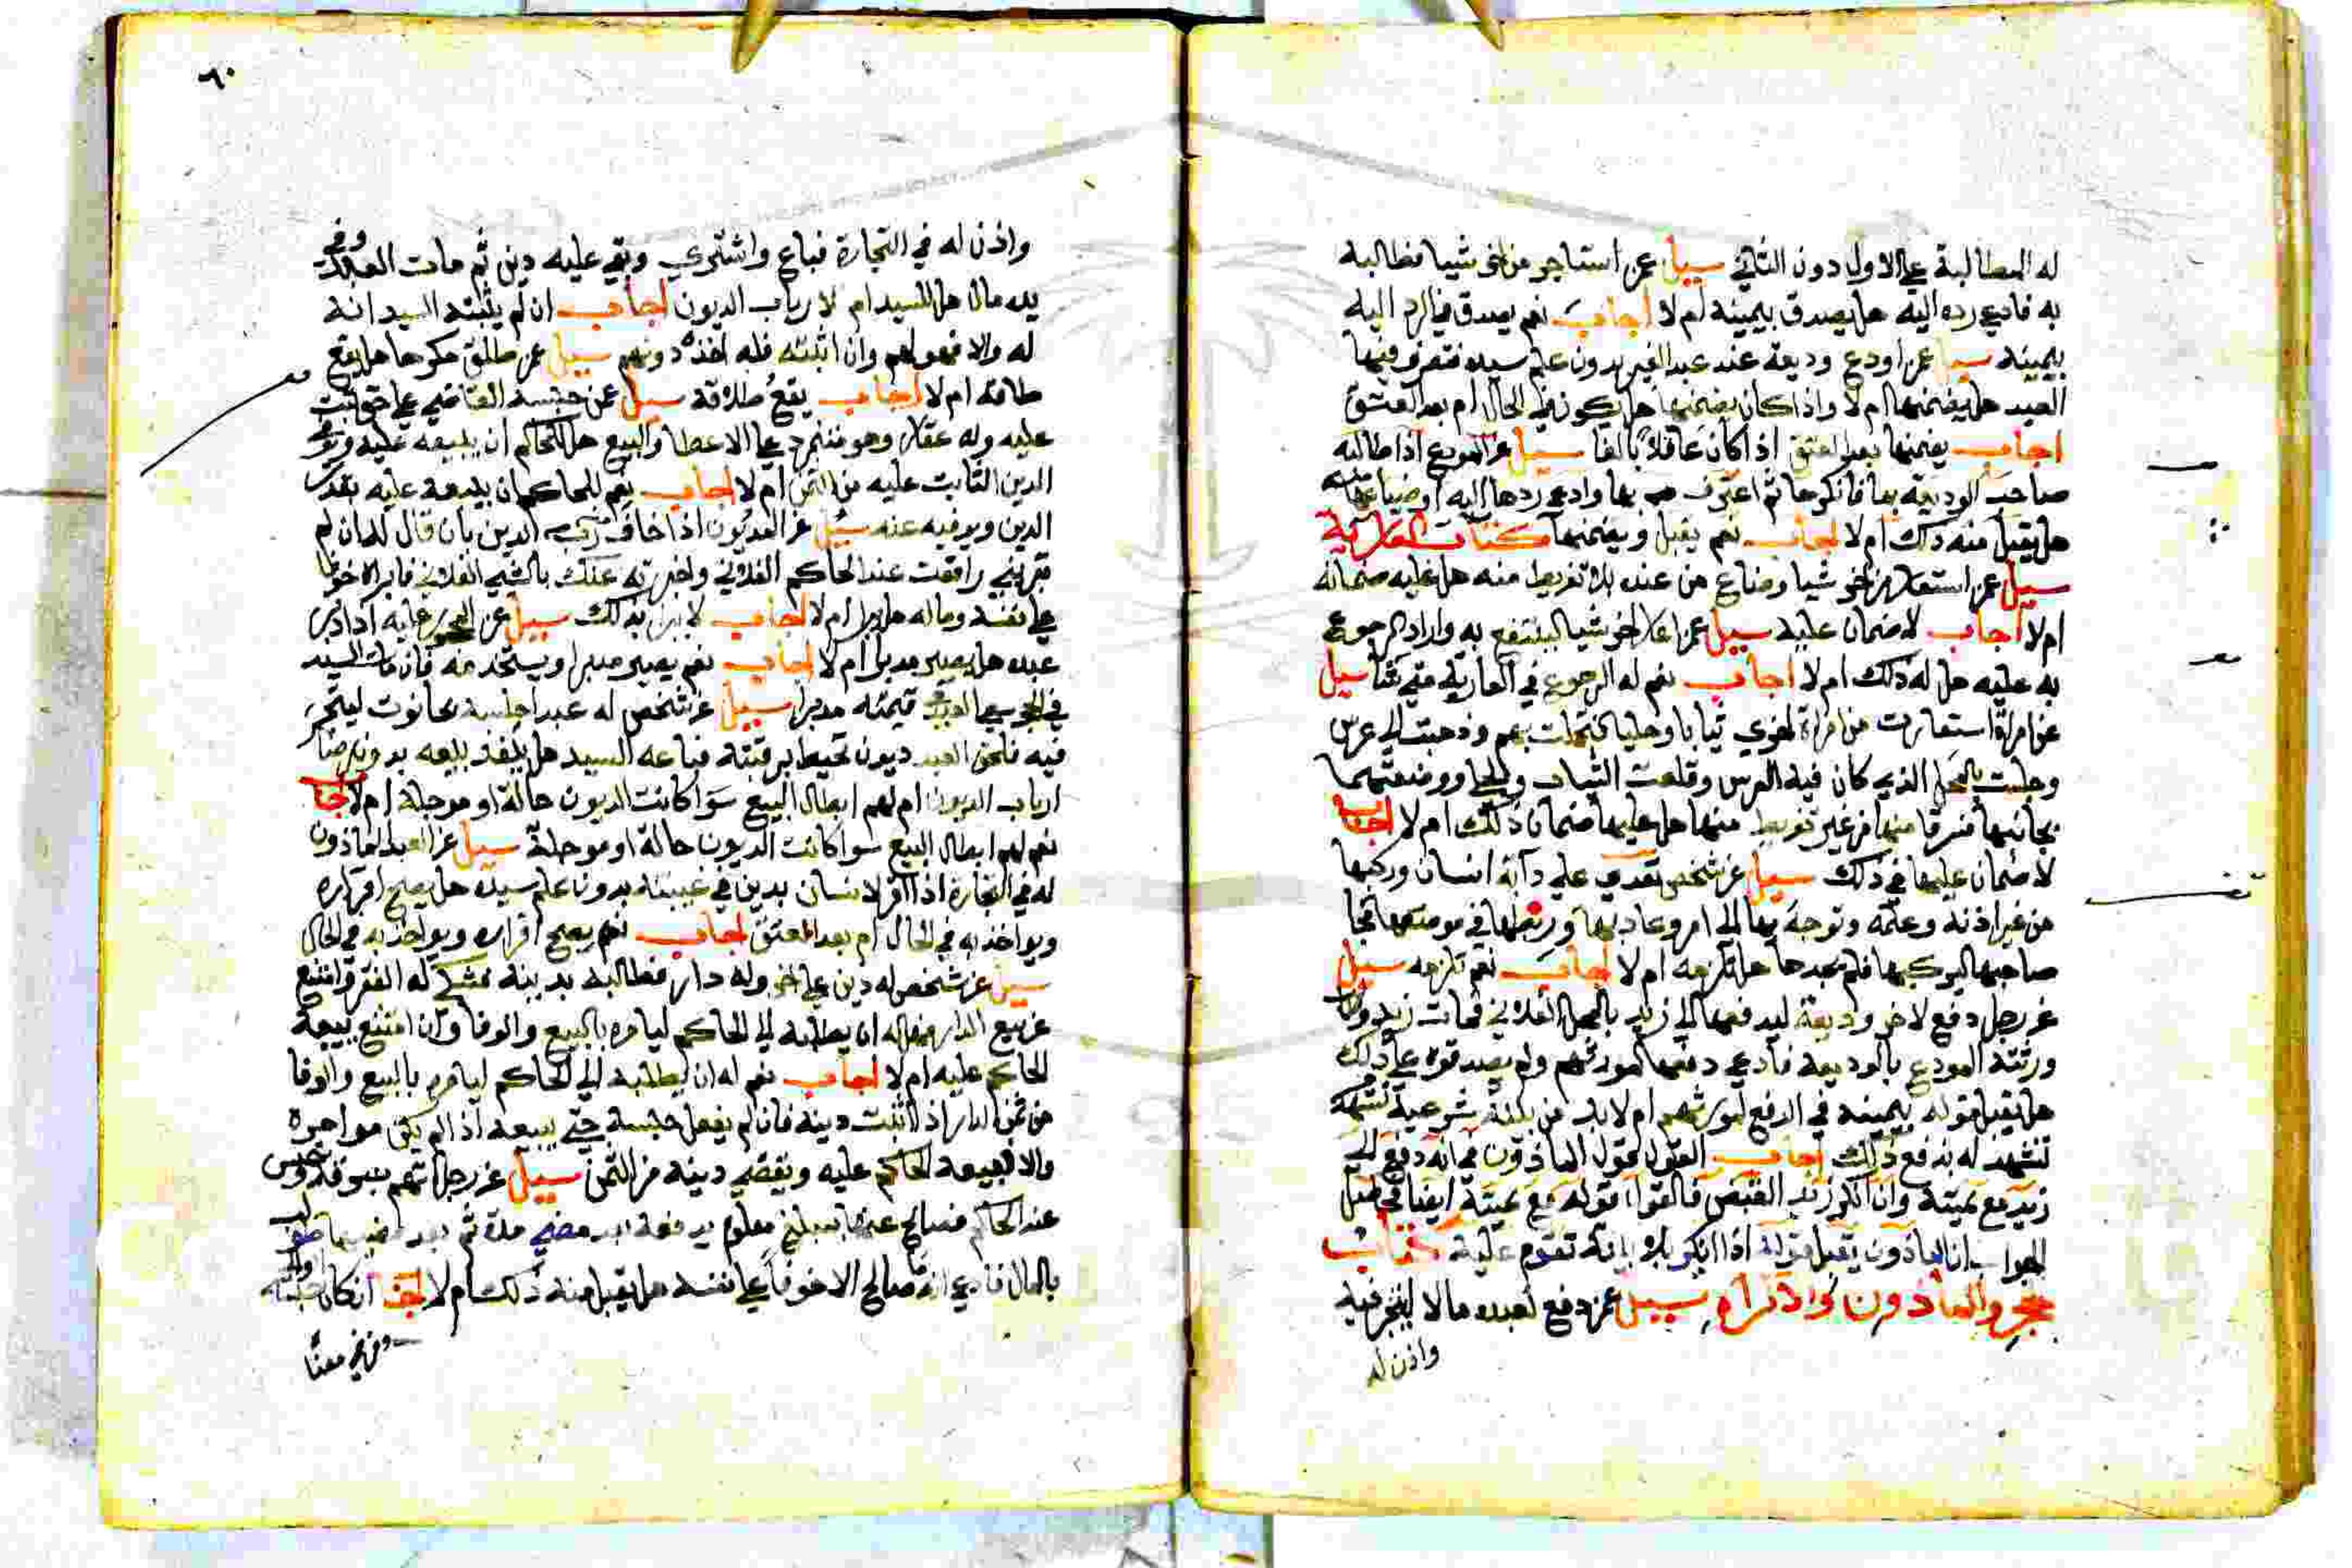 له المطالبة علي الاول دون الثاني سيل عمن استاجر من اخر شيا فطالبه
به فادعي رده اليه هل يصدق بيمينه ام لا اجاب نعم يصدق في الرد اليه
بيمينه سيل عمن اودع وديعة عند عبد الغير بدون علم سيده فتصرف فيها
العبد هل يضمنها ام لا واذا كان يضمنها هل يكون في الحال ام بعد العتق
اجاب يضمنها بعد العتق اذا كان عاقلا بالغا سيل عن المودع اذا طالبه
صاحب الوديعة بها فانكرها ثم اعترف بها وادعي ردها اليه او ضياعها
هل يقبل منه ذلك ام لا اجاب نعم يقبل ويضمنها كتاب العارية
سيل عمن استعار من اخر شيا وضاع من عنده بلا تفريط منه هل عليه ضمانه
ام لا اجاب لا ضمان عليه سيل عمن اعار لاخر شيا لينتفع به واراد الرجوع
به عليه هل له ذلك ام لا اجاب نعم له الرجوع في العارية متي شا سيل
عن امراة استعارت من امراة اخري ثيابا وحليا وتجملت بهم وذهبت الي عرس
وجلست بالمحل الذي كان فيه العرس وقلعت الثياب والحلي ووضعتهما
بجانبها فسرقا منها من غير تفريط منها هل عليها ضمان ذلك ام لا اجاب
لا ضمان عليها في ذلك سيل عن شخص تعدي علي دابة انسان وركبها
من غير اذنه وعلمه وتوجه بها الي امر وعاد بها وربطها في موضعها فجا
صاحبها ليركبها فلم يجدها هل تلزمه ام لا اجاب نعم تلزمه سيل
عن رجل دفع لاخر وديعة ليدفعها الي زيد بالمحل الفلاني فمات زيد
ورثته المودع بالوديعة فادعي دفعها لمورثهم ولم يصدقوه علي ذلك
هل يقبل قوله بيمينه في الدفع لمورثهم ام لا بد من بينة شرعية
تشهد له بدفع ذلك اجاب القول قول الماذون في انه دفع الي
زيد مع يمينه وان انكر زيد القبض فالقول قوله مع يمينه ايضا
الجواب ان الماذون يقبل قوله اذا انكر بلا بينة تقوم عليه كتاب
حجر والماذون والاكراه سيل عمن دفع لعبده مالا ليتجر فيه
واذن له
٦٠
واذن له في التجارة فباع واشتري وبقي عليه دين ثم مات العبد وفي
يده مال هل للسيد ام لارباب الديون اجاب ان لم يثبته السيد انه
له والا فهو لهم وان اثبته فله اخذه دونهم سيل عمن طلق مكرها هل يقع
طلاقه ام لا اجاب يقع طلاقه سيل عمن حبسه القاضي علي حق ثبت
عليه وله عقار وهو متمرد علي الاعطا والبيع هل للحاكم ان يبيعه عليه ويوفي
الدين الثابت عليه من الثمن ام لا اجاب نعم للحاكم ان يبيعه عليه بقدر
الدين ويوفيه عنه سيل عن المديون اذا خاف رب الدين بان قال له ان لم
تبريني رافعت عند الحاكم الفلاني واخبرته عنك بالشي الفلاني فابراه خوفا
علي نفسه وماله هل يبرا ام لا اجاب لا يبرا بذلك سيل عن المحجور عليه اذا دبر
عبده هل يصير مدبرا ام لا اجاب نعم يصير مدبرا ويستخدمه فان مات السيد
في الحجر يسعي العبد في قيمته مدبرا سيل عن شخص له عبد اجلسه بحانوت ليتجر
فيه فلحق العبد ديون تحيط برقبته فباعه السيد هل ينفذ بيعه بدون رضا
ارباب الديون ام لهم ابطال البيع سوا كانت الديون حالة او موجلة ام لا اجاب
نعم لهم ابطال البيع سوا كانت الديون حالة او موجلة سيل عن العبد الماذون
له في التجارة اذا اقر لانسان بدين في غيبته بدون علم سيده هل يصح اقراره
ويواخذ به في الحال ام بعد العتق اجاب نعم يصح اقراره ويواخذ به في الحال
سيل عن شخص له دين علي اخر وله دار فطالبه بدينه فشكي له الفقر وامتنع
عن بيع الدار فهل له ان يطلبه الي الحاكم ليامره بالبيع والوفا وان امتنع يبيعه
الحاكم عليه ام لا اجاب نعم له ان يطلبه الي الحاكم ليامره بالبيع والوفا
من ثمن الدار اذا اثبت دينه فان لم يفعل حبسه حتي يبيعه اذا لم يكن مواجره
والا فيبيعه الحاكم عليه ويقضي دينه من الثمن سيل عن رجل اتهم بسرقة وحبس
عند الحاكم فصالح عنها بمبلغ معلوم يدفعه بعد مضي مدة ثم بعد مضيها طولب
بالمال فادعي انه صالح الا خوفا علي نفسه هل يقبل منه ذلك ام لا اجاب ان كان حبسه